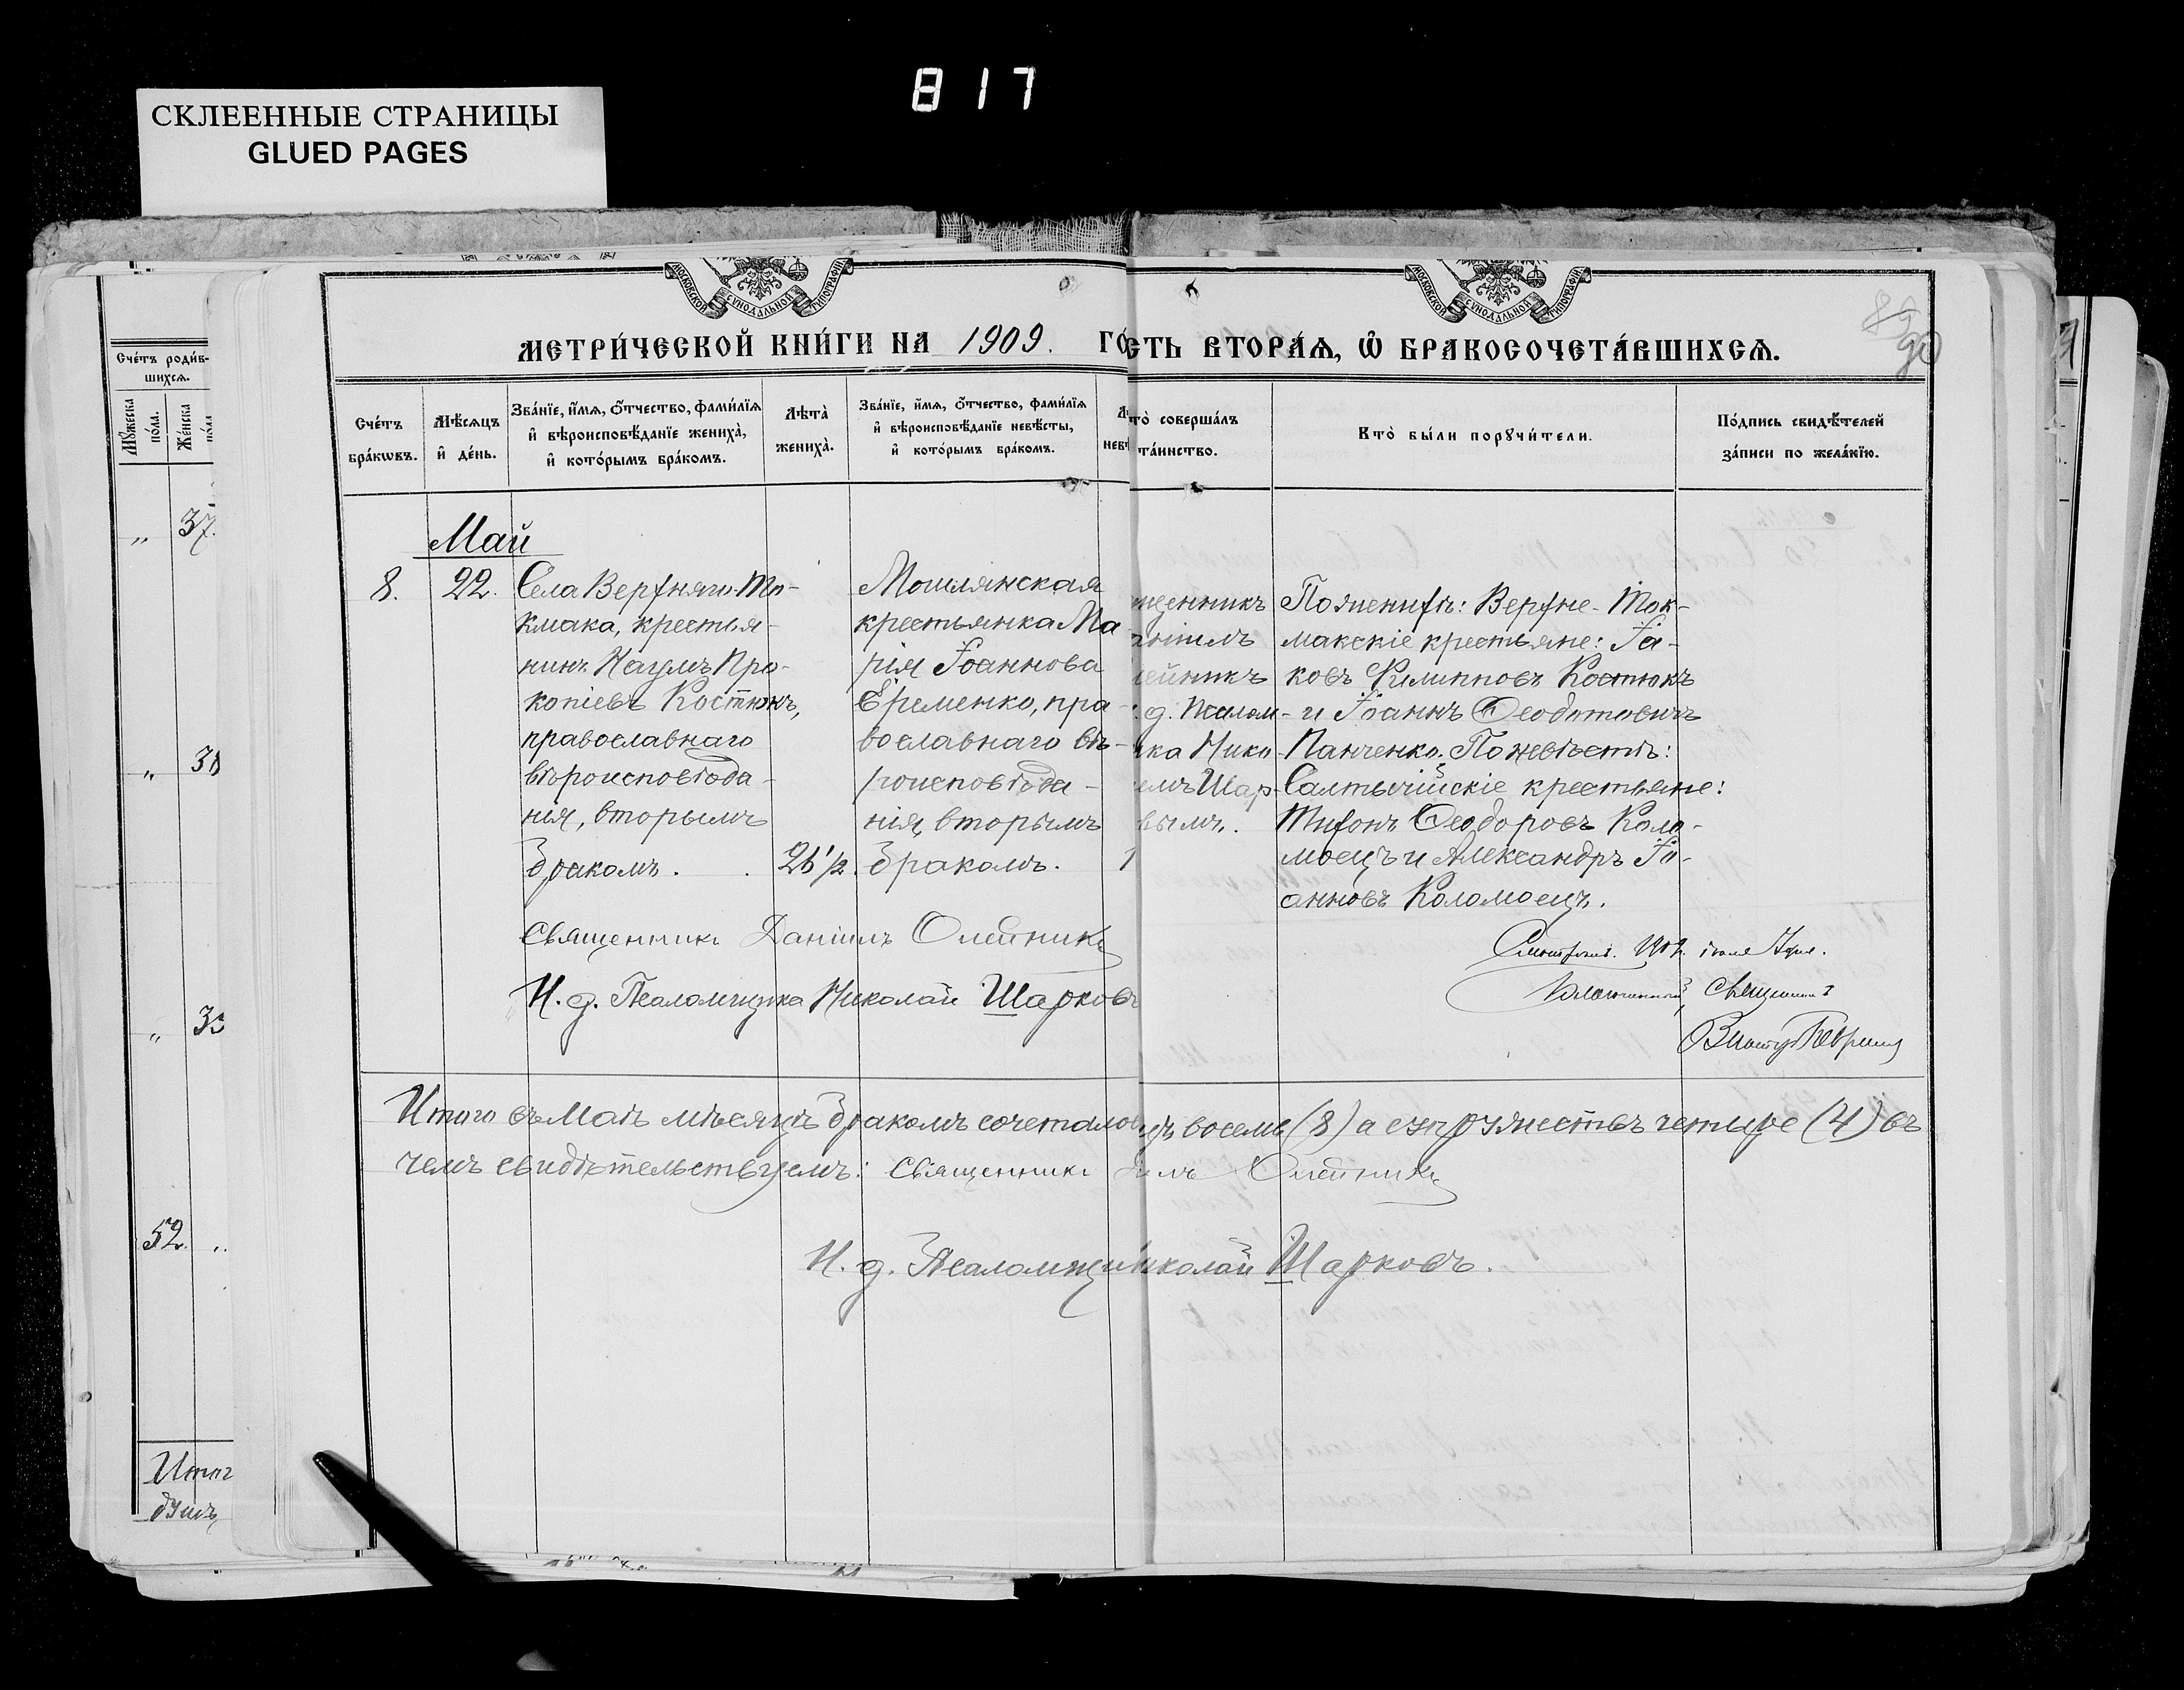 817
СКЛЕЕННЫЕ СТРАНИЦЫ
GLUED PAGES
МОСКОВСКОЙ СѴНОДАЛЬНОЙ ТИПОГРАФІИ
МОСКОВСКОЙ СѴНОДАЛЬНОЙ ТИПОГРАФІИ
МЕТРИ́ЧЕСКОЙ КНИ́ГИ НА 1909. ГО
СТЬ ВТОРА́Я, Ѡ БРАКОСОЧЕТА́ВШИХСЯ.
90
Сче́тъ роди́в-
шихсѧ.
Мꙋжеска по́ла.
Же́нска по́ла
37.
52.
Итог
душъ
Сче́тъ бра́кѡвъ.
Мѣ́сѧцъ и҆ де́нь.
Зва́нїе, и҆́мѧ, ѻ҆́тчество, фами́лїѧ
и҆ вѣроисповѣ́данїе жениха̀,
и҆ кото́рымъ бра́комъ.
Лѣта̀ жениха̀.
Зва́нїе, и҆́мѧ, ѻ҆́тчество, фами́лїѧ
и҆ вѣроисповѣ́данїе невѣ́сты,
и҆ кото́рымъ бра́комъ.
то̀ соверша́лъ
та́инство.
Кто̀ бы́ли порꙋчи́тели.
По́дпись свидѣ́телей
за́писи по жела́нїю.
Май
8. 22.
Села Верхняго-То-
кмака, крестья-
нинъ Наумъ Про-
копіевъ Костюкъ,
православнаго
вѣроисповѣда-
нія, вторымъ
бракомъ.
26 1/2.
крестьянка Ма-
рія Іоаннова
Еременко, пра-
вославнаго вѣ-
роисповѣда-
нія, вторымъ
бракомъ.
1
щенникъ
аніилъ
лейникъ
.д. Псалом-
ика Нико
емъ Шар-
вымъ.
По женихѣ: Верхне-Ток-
макскіе крестьяне: Іа-
ковъ Филипповъ Костюкъ
и Іоаннъ Ѳеодотовичъ
Панченко. По невѣстѣ:
Салтычійскіе крестьяне:
Тихонъ Ѳеодоровъ Коло-
моецъ и Александръ Іо-
анновъ Коломоецъ.
Священникъ Даніилъ Олейникъ
И. д. Псаломщика Николай Шарковъ
Священникъ
Итого въ Маѣ мѣсяцѣ бракомъ сочетало
восемь (8) а супружествъ четыре (4) въ
чемъ свидѣтельствуемъ: Священникъ
илъ Олейникъ
И. д. Псаломщи
иколай Шарковъ.